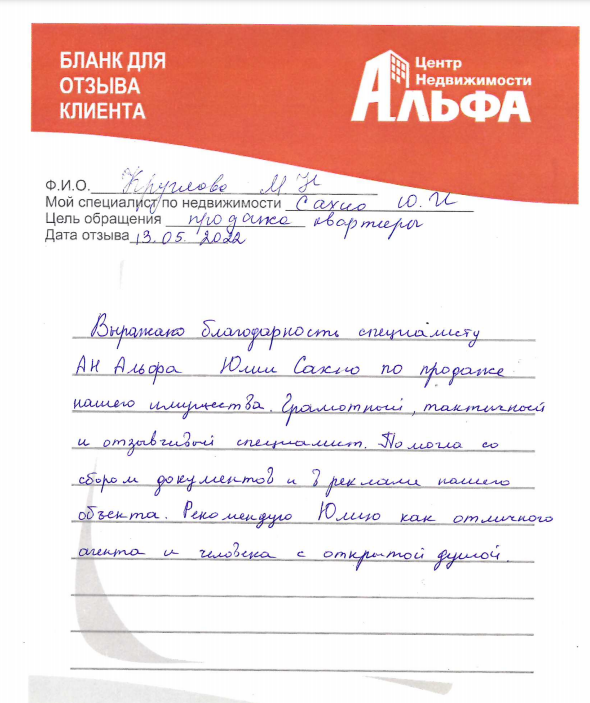 БЛАНК ДЛЯ
ОТЗЫВА
КЛИЕНТА
Центр
Недвижимости
АЛЬФА
Ф.И.О. Круглова М Н
Мой специалист по недвижимости Сахно Ю. И
Цель обращения продажа квартиры
Дата отзыва 13.05. 2022
Выражаю благодарность специалисту
АН Альфа Юлии Сахно по продаже
нашего имущества. Грамотный, тактичный
и отзывчивый специалист. Помогла со
сбором документов и в рекламе нашего
объекта. Рекомендую Юлию как отличного
агента и человека с открытой душой.